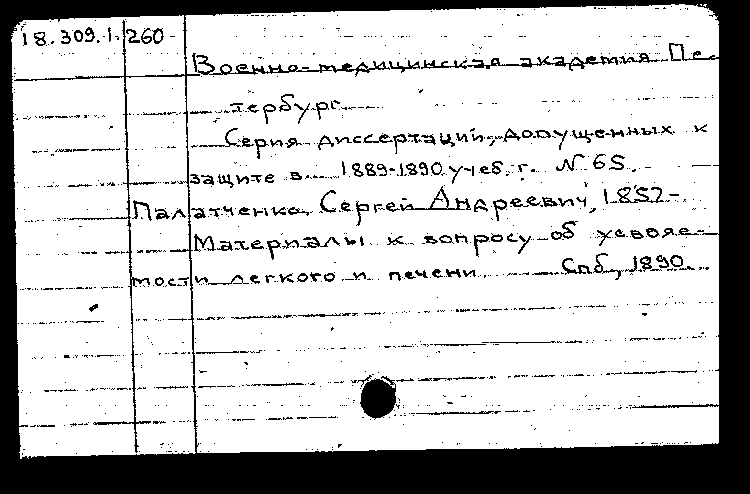 18.309.1.260
Военно-медицинская академия. Пе-
тербург.
Серия диссертаций, допущенных к
защите в 1889-1890 учеб. г. N 65.
Палатченко, Сергей Андреевич, 1852-
Материалы к вопросу об усвояе-
мости легкого и печени Спб, 1890.